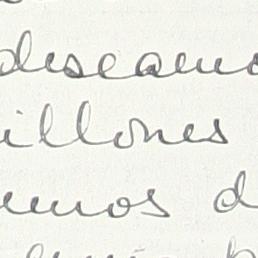 deseamo
illones
emos d